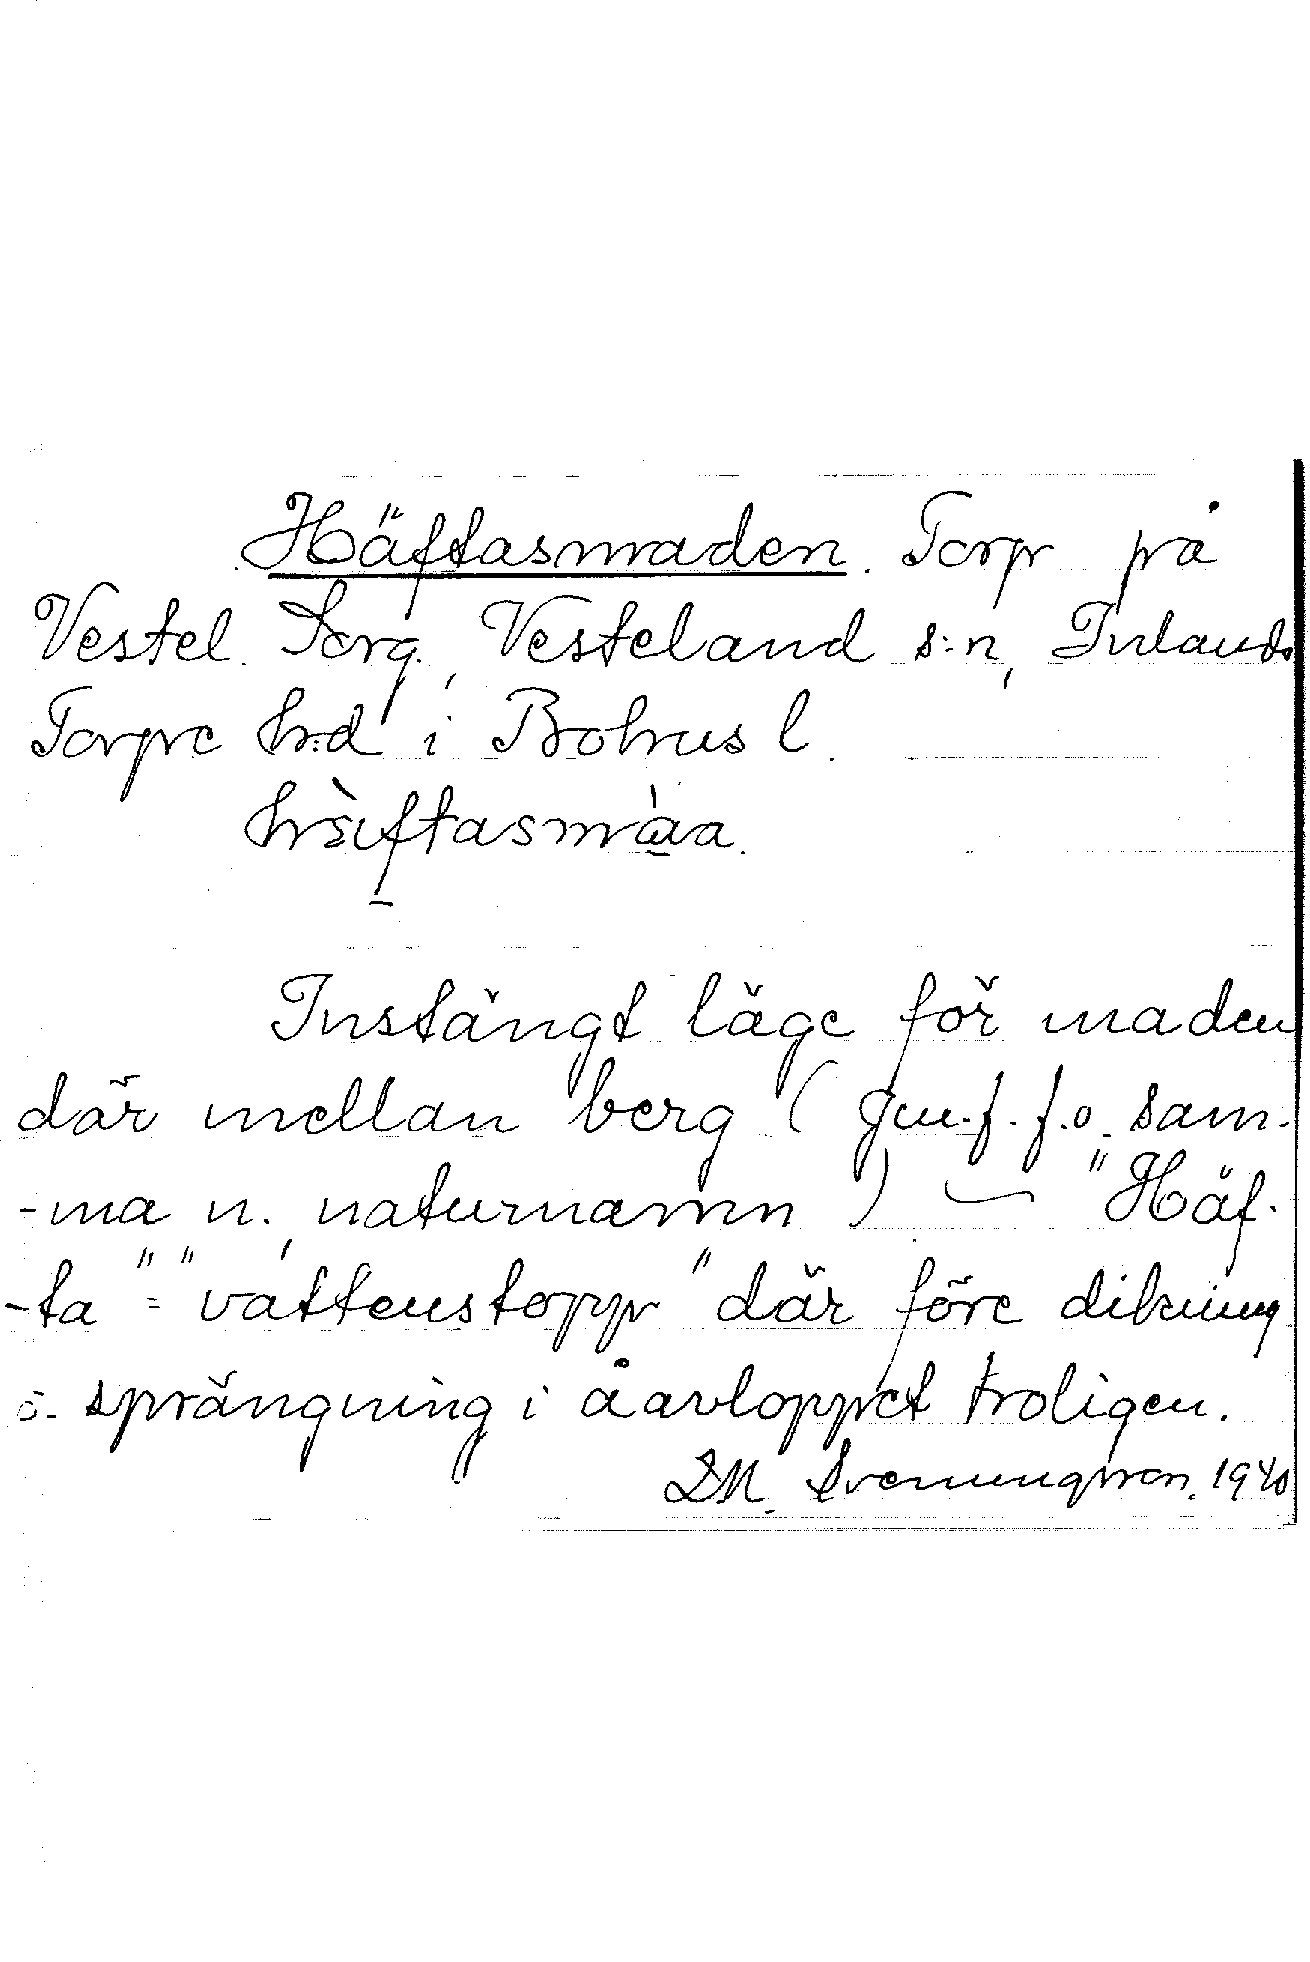 Häftasmaden. Torp på
Vestel. Torg, Vesteland s:n, Inlands
Torpe hrd i Bohus l.
Instängt läge för maden
där mellan berg (Jm.f. f.ö. sam-
-ma n., naturnamn) — "Häf-
-ta" = "vattenstopp" där före dikning
o. sprängning i åavloppet troligen.
D M. Svenungsson. 1940